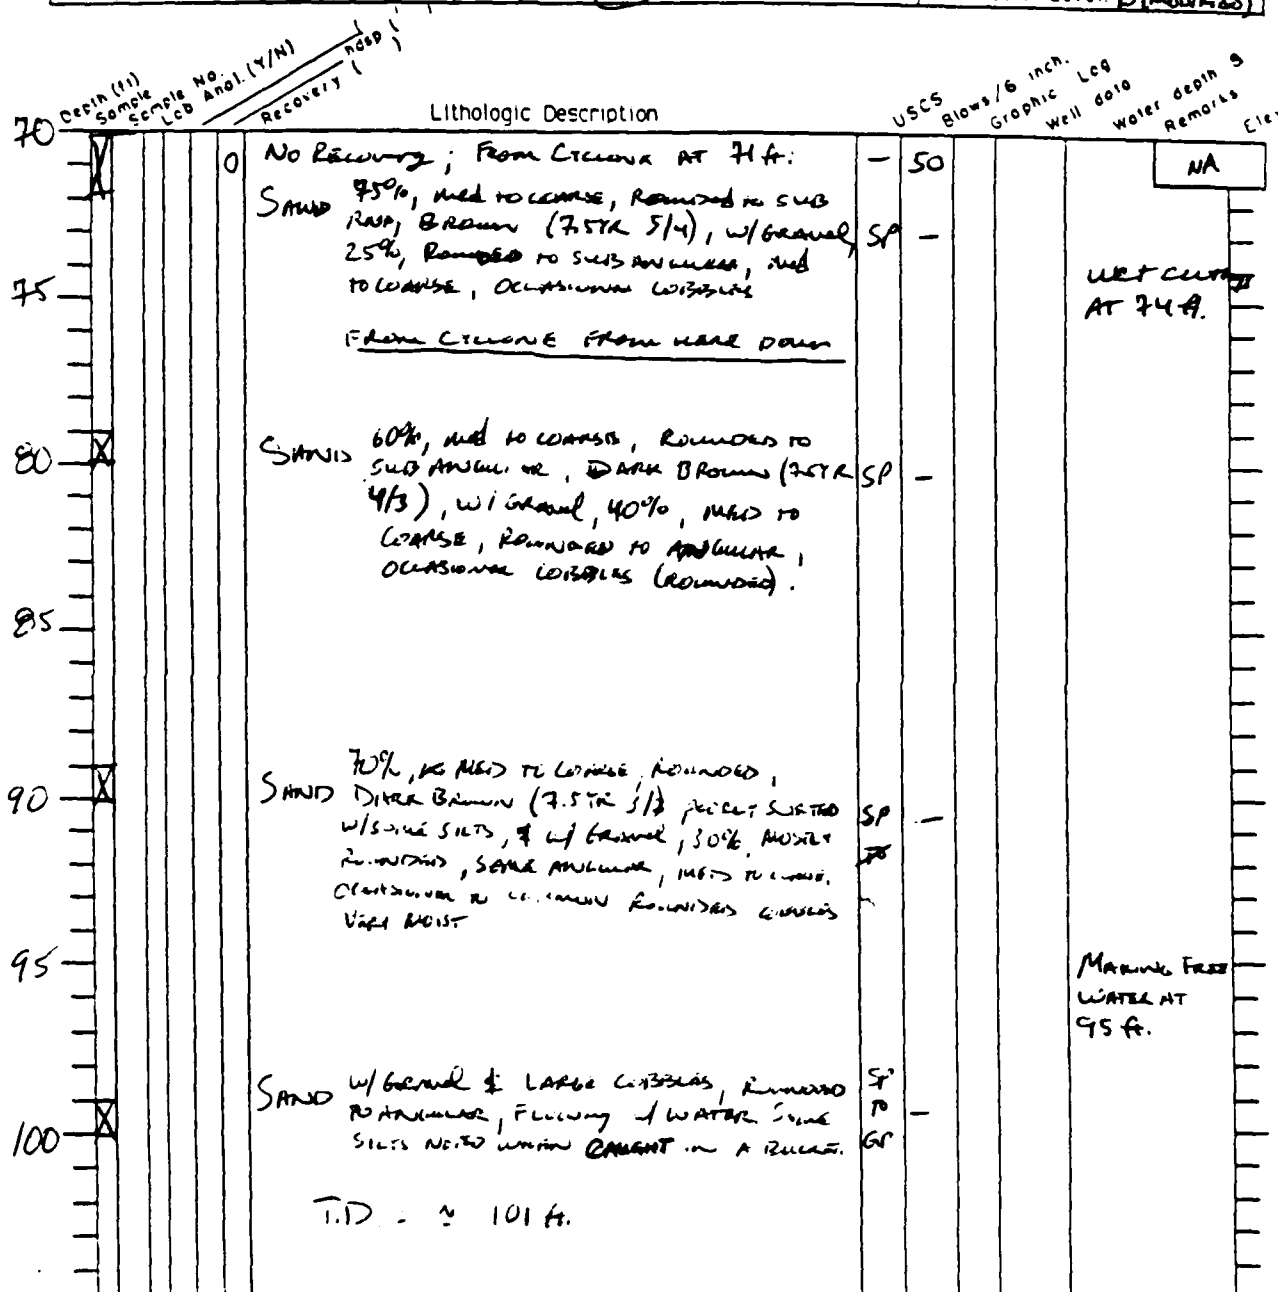 (MODIFIED)
Depth (ft)
Sample
Sample No.
Lab Anal. (Y/N)
Recovery ( )
Lithologic Description
USCS
Blows/6 inch.
Graphic Log
Well data
Water depth &
Remarks
Elev
70
0 No Recovery; From Cyclone at 71 ft. - 50 NA
Sand 75%, med to coarse, Rounded to sub
Rnd, Brown (7.5YR 5/4), w/Gravel, SP -
25%, Rounded to sub angular, med
to coarse, occasional cobbles
75
wet cuttings
at 74 ft.
From Cyclone from here down
80
Sand 60%, med to coarse, Rounded to
sub angular, Dark Brown (7.5YR SP -
4/3), w/ Gravel, 40%, med to
coarse, Rounded to Angular,
occasional cobbles (rounded).
85
90
Sand 70%, med to coarse, rounded,
Dark Brown (7.5YR poorly sorted SP -
w/some silts, & w/ Gravel, 30%, mostly
rounded, some angular, med to coarse,
occasional to common rounded cobbles
very moist
95
Making Free
water at
95 ft.
Sand w/ Gravel & Large cobbles, rounded SP
to angular, Flowing w/ water some to -
silts noted when caught in a bucket. GP
100
T.D. ~ 101 ft.